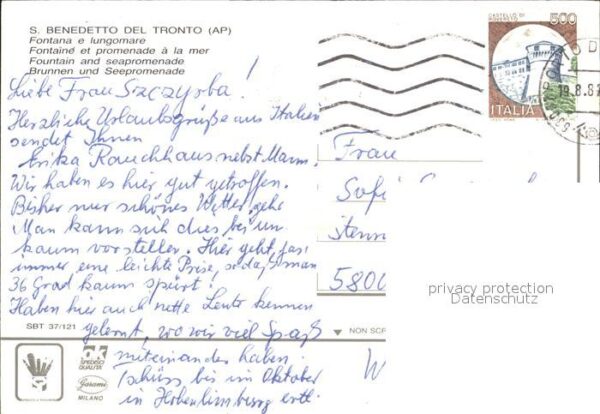 S. BENEDETTO DEL TRONTO (AP)
Fontana e lungomare
Fontaine et promenade à la mer
Fountain and seapromenade
Brunnen und Seepromenade
Liebe Frau Szczyrba!
Herzliche Urlaubsgrüße aus Italien
sendet Ihnen
Erika Rauchhaus nebst Mann.
Wir haben es hier gut getroffen.
Bisher nur schönes Wetter gehabt
Man kann sich dies bei uns
kaum vorstellen. Hier geht fast
immer eine leichte Prise, so daß man
36 Grad kaum spürt.
Haben hier auch nette Leute kennen
gelernt, wo wir viel Spaß
miteinander haben.
Tschüss bis im Oktober
in Hohenlimburg evtl.
SBT 37/121
NON SCR
SPEDISCI
QUALITÀ
Garami
MILANO
CASTELLO DI
ROVERETO
500
ITALIA
19.8.8
Frau
Sofi
5800
W
privacy protection
Datenschutz